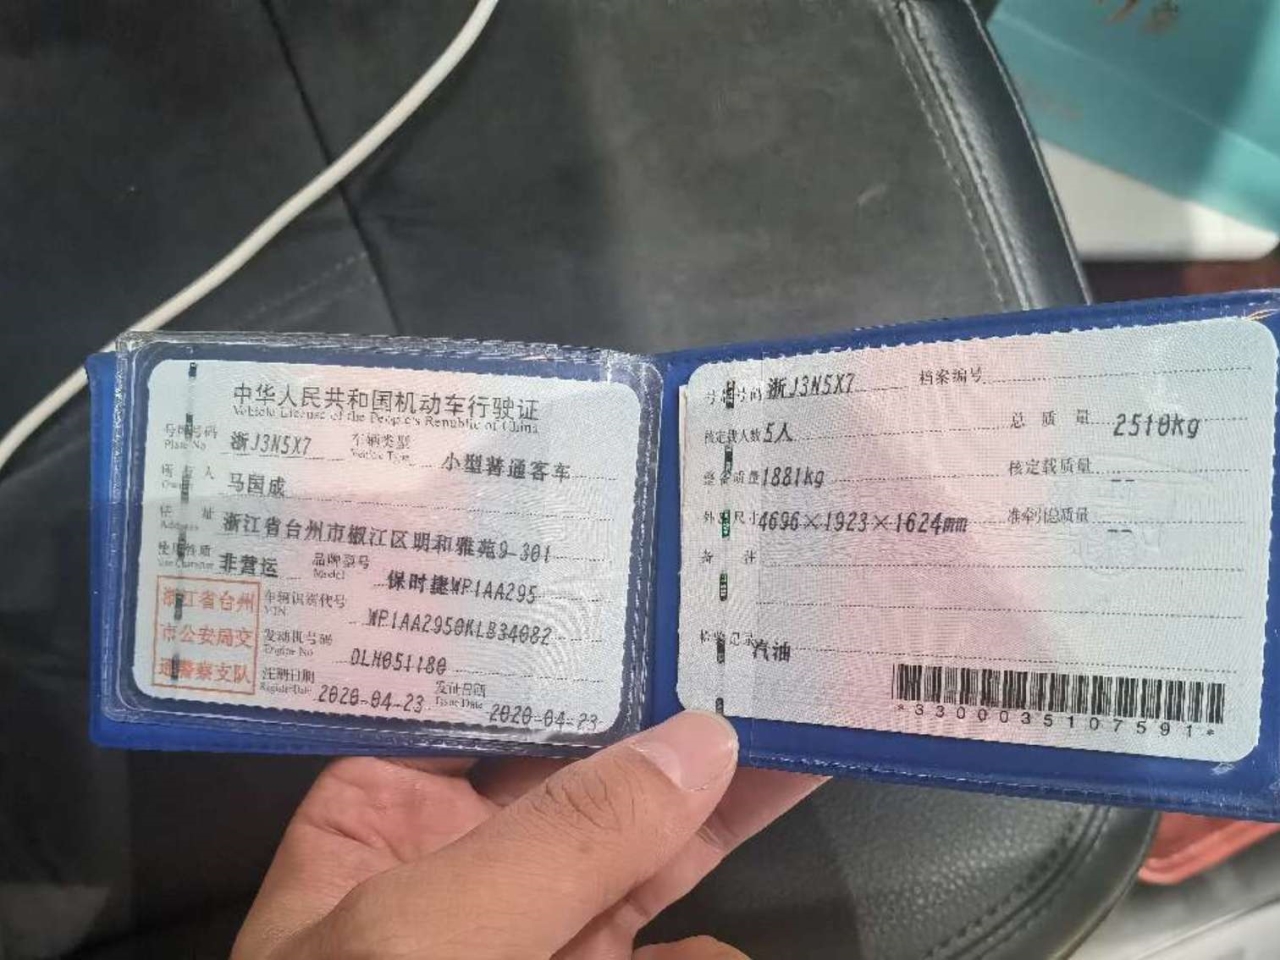 中华人民共和国机动车行驶证
Vehicle License of the People's Republic of China
号牌号码 浙J3N5X7 车辆类型 小型普通客车
Plate No. Vehicle Type
所有人 马国成
Owner
住址 浙江省台州市椒江区明和雅苑9-301
Address
使用性质 非营运 品牌型号 保时捷WP1AA295
Use Character Model
浙江省台州
市公安局交
通警察支队
车辆识别代号 WP1AA2950KLB34082
VIN
发动机号码 DLH051180
Engine No.
注册日期 2020-04-23 发证日期 2020-04-23
Register Date Issue Date
号牌号码 浙J3N5X7 档案编号
核定载人数 5人 总质量 2510kg
整备质量 1881kg 核定载质量 --
外廓尺寸 4696×1923×1624mm 准牵引总质量 --
备注
检验记录 汽油
*3300035107591*